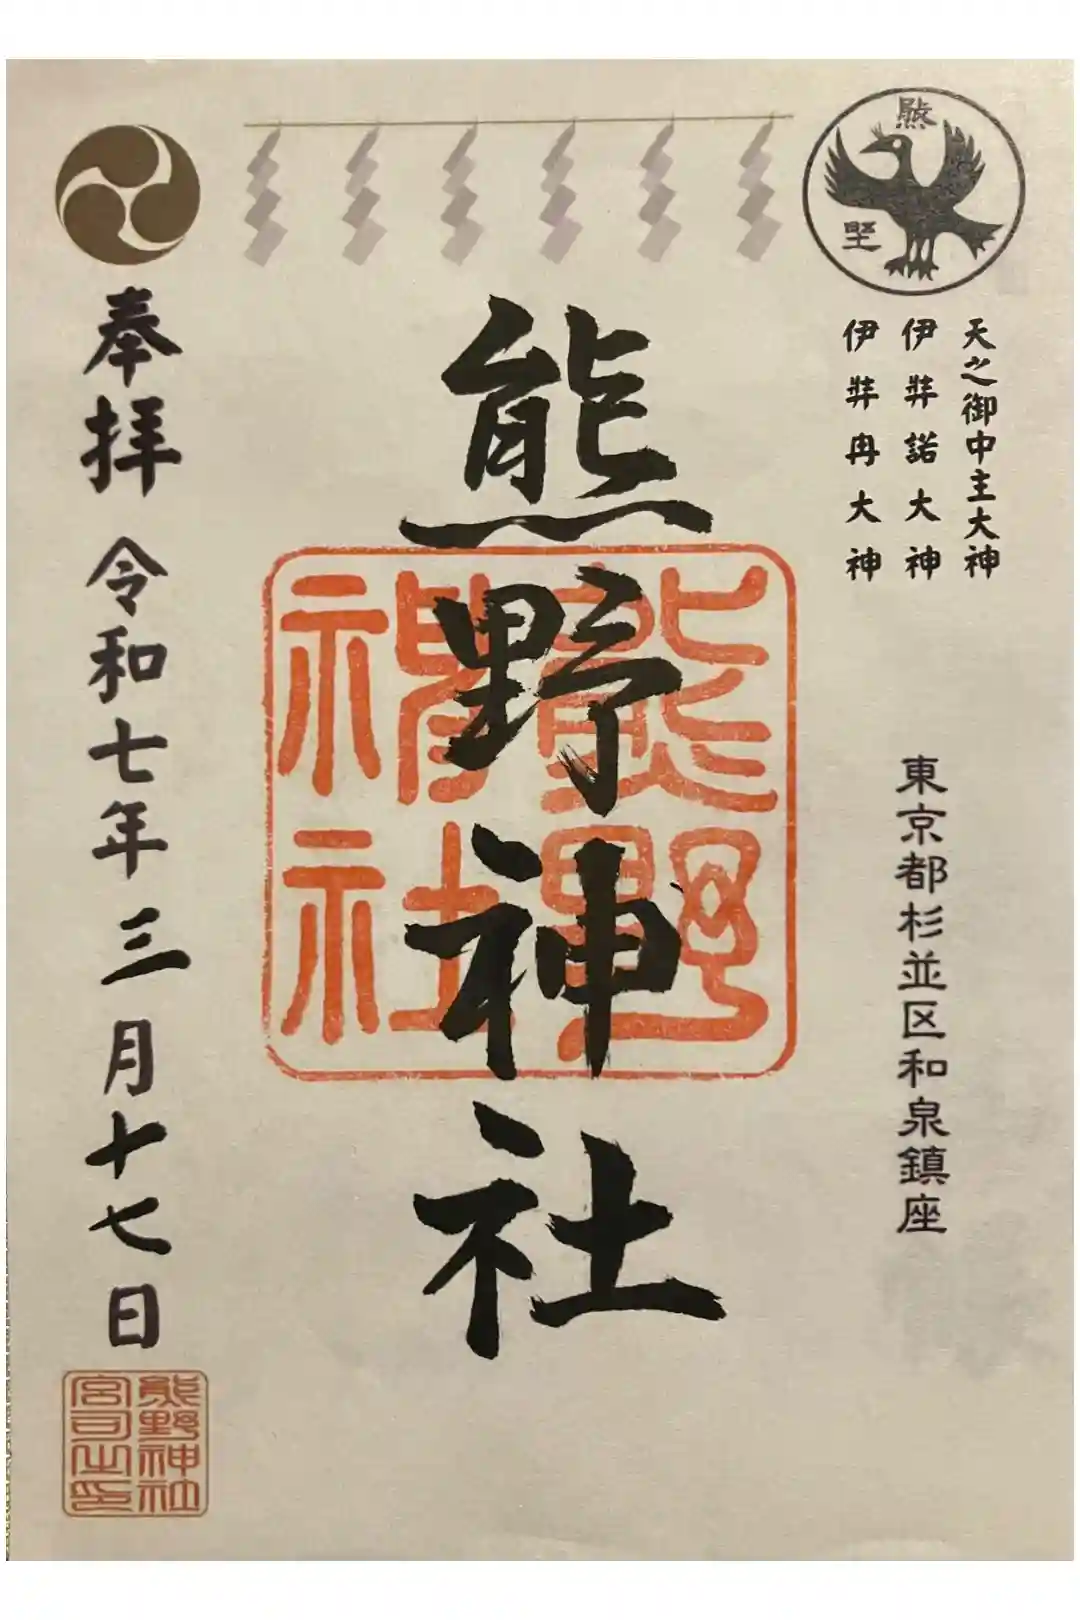 熊野
天之御中主大神
伊弉諾大神
伊弉冉大神
東京都杉並区和泉鎮座
熊野神社
熊野
神社
奉拝 令和七年三月十七日
熊野神社
宮司之印